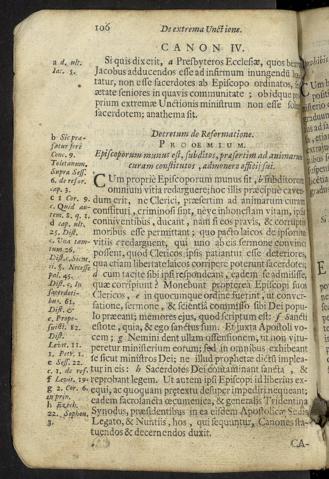 106
De extrema Unctione.
CANON IV.
a d. ult.
Iac. 5.
Si quis dixerit, a Presbyteros Ecclesiæ, quos
Jacobus adducendos esse ad infirmum inungendũ
tatur, non esse sacerdotes ab Episcopo ordinatos,
ætate seniores in quavis communitate; obidque
prium extremæ Unctionis ministrum non esse
sacerdotem; anathema sit.
Decretum de Reformatione.
PROEMIUM.
Episcoporum munus est, subditos, præsertim ad animarum
curam constitutos, admonere officii sui.
b Sic
Conc. 9.
Toletanum.
Supra Sess.
6. de refor.
cap. 3.
c 1 Cor. 9.
25. Dist.
CUm propriè Episcoporum munus sit, b subditorum
omnium vitia redarguere; hoc illis præcipuè caven-
dum erit, ne Clerici, præsertim ad animarum curam
constituti, criminosi sint, neve inhonestam vitam, ipsis
conniventibus, ducant; nam si eos pravis, & corruptis
moribus esse permittant; quo pacto laicos de ipsorum
vitiis redarguent, qui uno ab eis sermone convinci
possent, quod Clericos ipsis patiantur esse deteriores,
qua etiam libertate laicos corripere poterunt sacerdotes;
d cum tacitè sibi ipsi respondeant, eadem se admisisse,
quæ corripiunt? Monebunt propterea Episcopi suos
Clericos, e in quocunque ordine fuerint, ut conver-
satione, sermone, & scientiâ commisso sibi Dei popu-
lo præeant; memores ejus, quod scriptum est: f Sancti
estote, quia, & ego sanctus sum. Et juxta Apostoli vo-
cem; g Nemini dent ullam offensionem, ut non vitu-
peretur ministerium eorum; sed in omnibus exhibeant
se sicut ministros Dei; ne illud prophetæ dictũ implea-
tur in eis: h Sacerdotes Dei contaminant sancta, &
reprobant legem. Ut autem ipsi Episcopi id liberius ex-
equi, ac quoquam prætextu desuper impediri nequeant;
eadem sacrosancta œcumenica, & generalis Tridentina
Synodus, præsidentibus in ea eisdem Apostolicæ Sedis
Legato, & Nuntiis, hos, qui sequuntur, Canones sta-
tuendos & decernendos duxit.
Dist.
Levit. 11.
1. Petr. 1.
e Sess. 22.
c. 1. de ref.
f Levit. 19.
g 2. Cor. 6.
in prin.
h Ezech.
22. Sophon.
3.
CA-